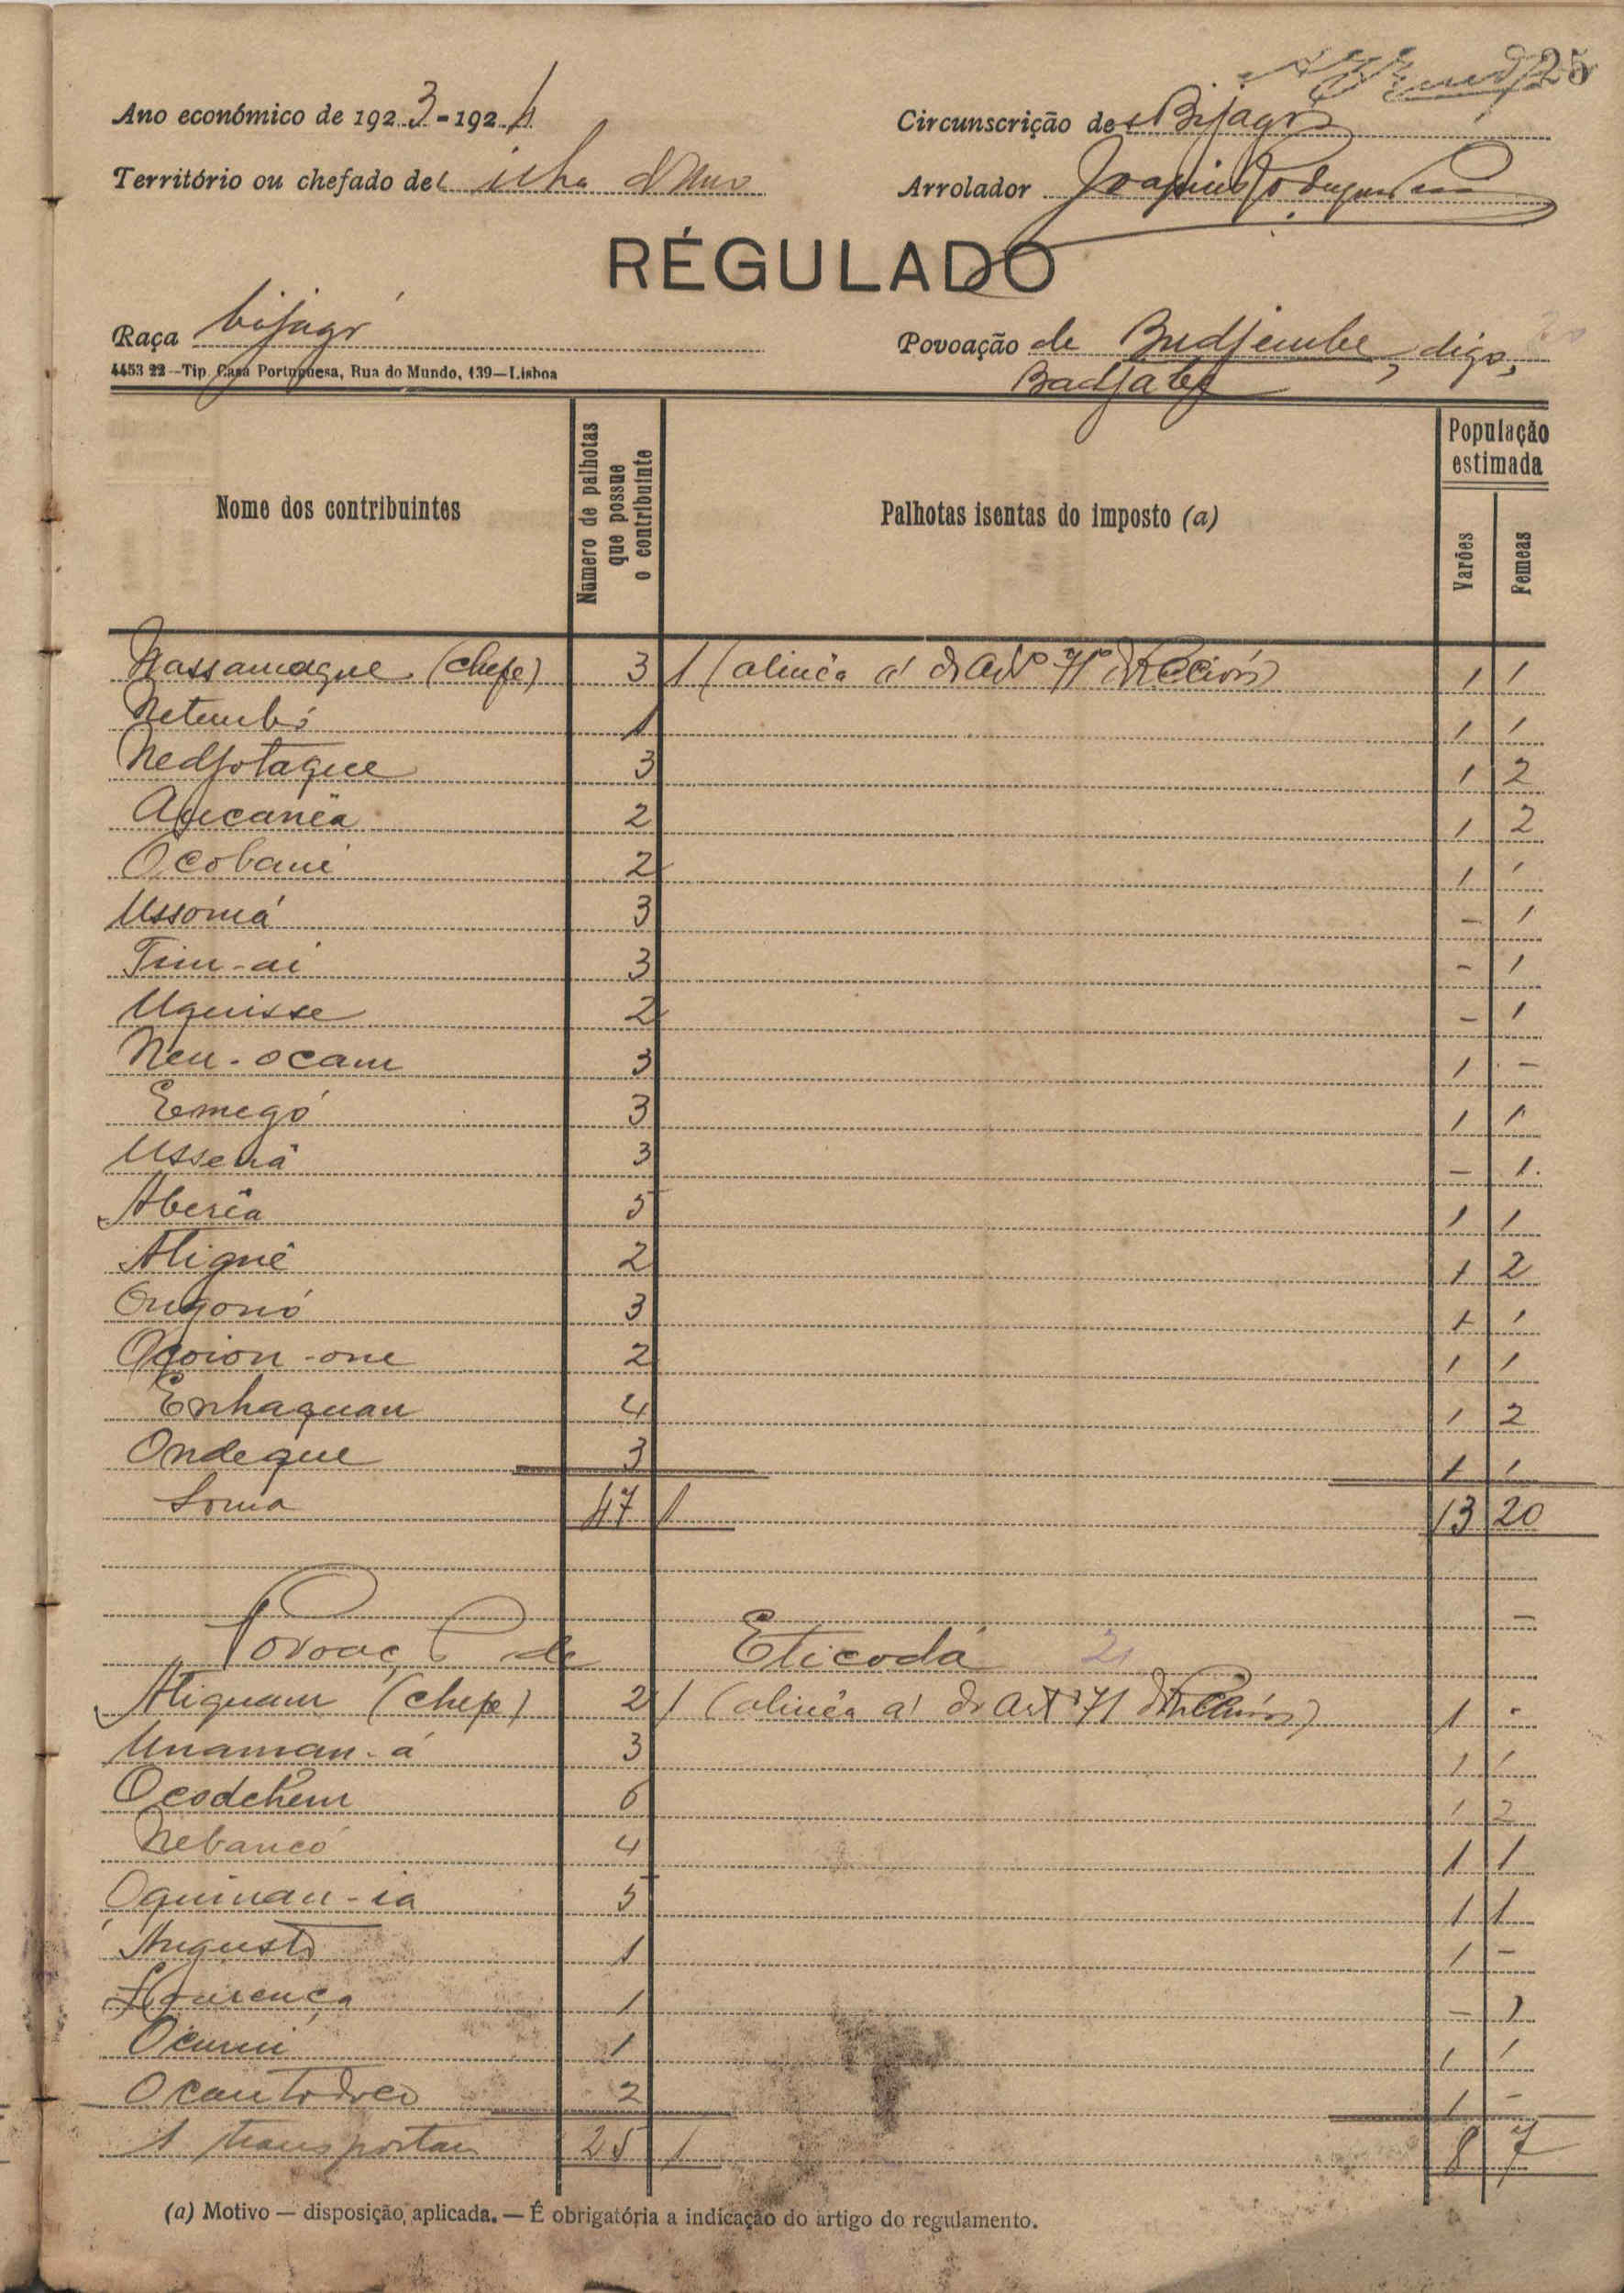 25
Ano económico de 1923-1924
Circunscrição de Bijagós
Território ou chefado de ilha
Arrolador Joaquim
RÉGULADO
Raça bijagó
Povoação de Budjembe, digo,
Badjabe
4453 22—Tip. Casa Portuguesa, Rua do Mundo, 139—Lisboa
Nome dos contribuintes
Numero de palhotas que possue o contribuinte
Palhotas isentas do imposto (a)
População estimada
Varões
Femeas
Nassamaque (chefe) 3 1 (alinêa a) 1 1
Netembó 1 1 1
Nedjotaque 3 1 2
Apecanêa 2 1 2
Ocobane 2 1 1
Ussomá 3 - 1
Tim-ai 3 - 1
Uquisse 2 - 1
Neu-ocam 3 1 -
Eemegó 3 1 1
Ussenâ 3 - 1
Aberêa 5 1 1
Aliguê 2 1 2
Ongonó 3 1 1
Ogoion-one 2 1 1
Enhaquan 4 1 2
Ondeque 3 1 1
Soma 47 1 13 20
-
Povoação de Eticodá 21
Atiquam (chefe) 2 1 (alinêa a) do art 71 1 -
Unaman-á 3 1 1
Ocodchem 6 1 2
Nebancó 4 1 1
Oquinan-ia 5 1 1
Augusto 1 1 -
Lourença 1 - 1
Ocumi 1 1 1
2 1 -
A transportar 25 1 8 7
(a) Motivo — disposição aplicada. — É obrigatória a indicação do artigo do regulamento.